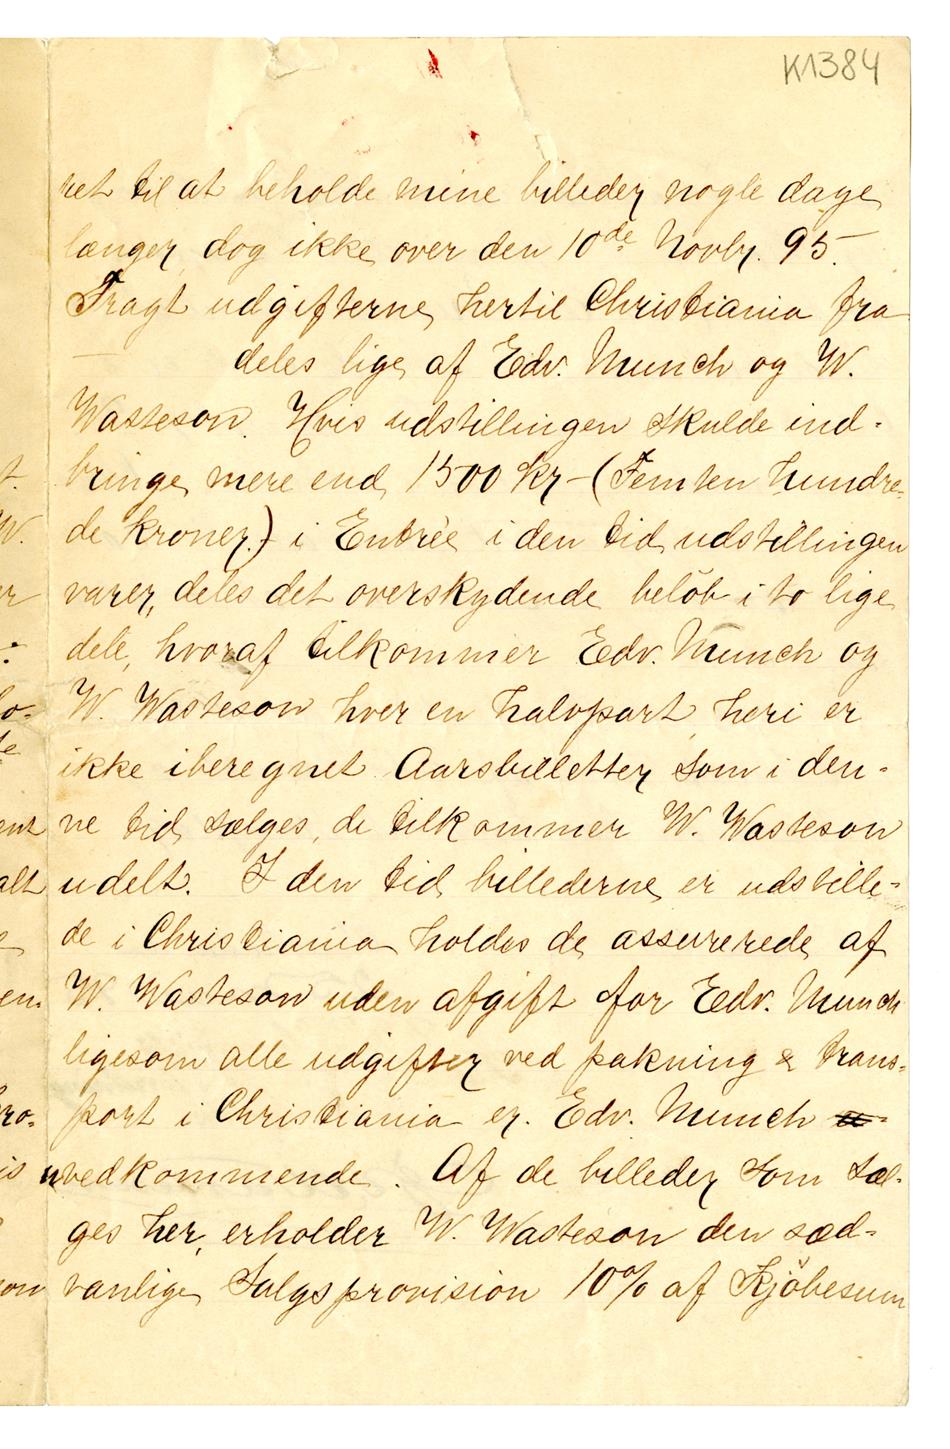 K1384
ret til at beholde mine billeder nogle dage
længer, dog ikke over den 10de Novbr. 95.
Fragt udgifterne hertil Christiania fra
— deles lige af Edv. Munch og W.
Wasteson. Hvis udstillingen skulde ind-
bringe mere end 1500 kr – (Femten hundre-
de kroner.) i Entrée i den tid udstillingen
varer, deles det overskydende beløb i to lige
dele, hvoraf tilkommer Edv. Munch og
W. Wasteson hver en halvpart, heri er
ikke iberegnet Aarsbilletter som i den-
ne tid sælges, de tilkommer W. Wasteson
udelt. I den tid billederne er udstille-
de i Christiania holdes de assurerede af
W. Wasteson uden afgift for Edv. Munch
ligesom alle udgifter ved pakning & trans-
port i Christiania er Edv. Munch
uvedkommende. Af de billeder som sæl-
ges her, erholder W. Wasteson den sæd-
vanlige Salgsprovision 10% af Kjöbesum